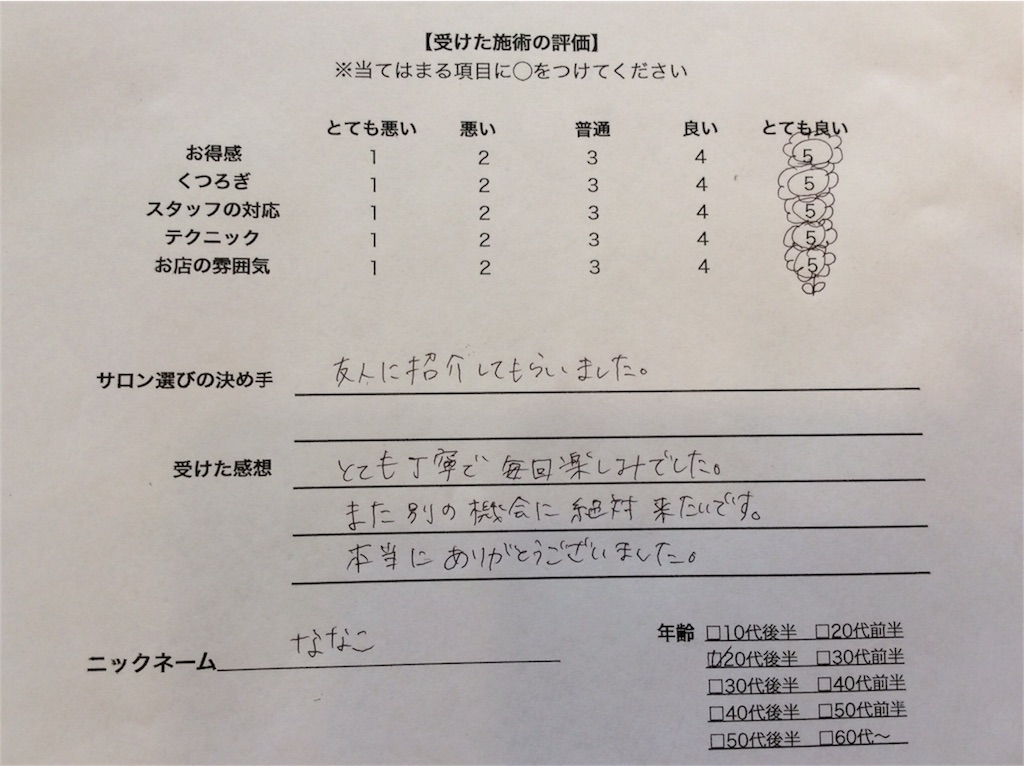 【受けた施術の評価】
※当てはまる項目に◯をつけてください
とても悪い 悪い 普通 良い とても良い
お得感 1 2 3 4 5
くつろぎ 1 2 3 4 5
スタッフの対応 1 2 3 4 5
テクニック 1 2 3 4 5
お店の雰囲気 1 2 3 4 5
サロン選びの決め手 友人に紹介してもらいました。
受けた感想 とても丁寧で毎回楽しみでした。
また別の機会に絶対来たいです。
本当にありがとうございました。
ニックネーム ななこ
年齢 □10代後半 □20代前半
☑20代後半 □30代前半
□30代後半 □40代前半
□40代後半 □50代前半
□50代後半 □60代〜